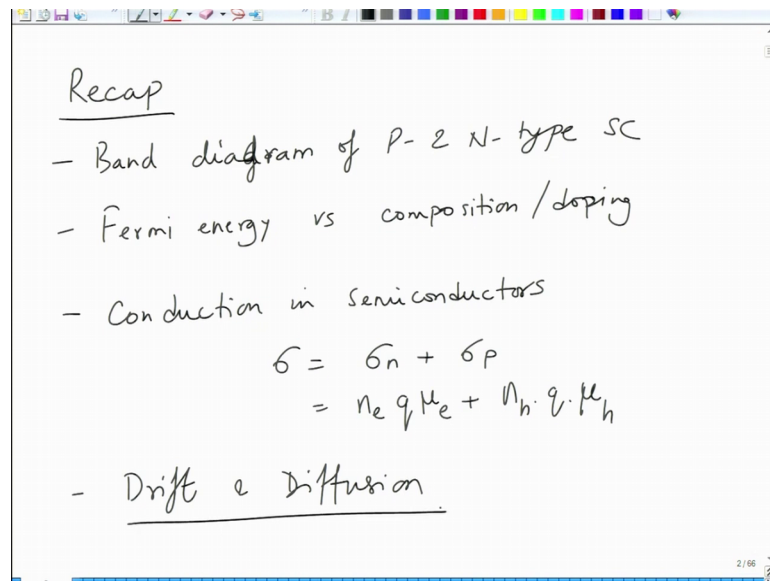 Recap
- Band diagram of P- & N-type SC
- Fermi energy vs composition/doping
- Conduction in semiconductors
σ = σn + σp
= ne q μe + nh. q. μh
- Drift & Diffusion
2/66